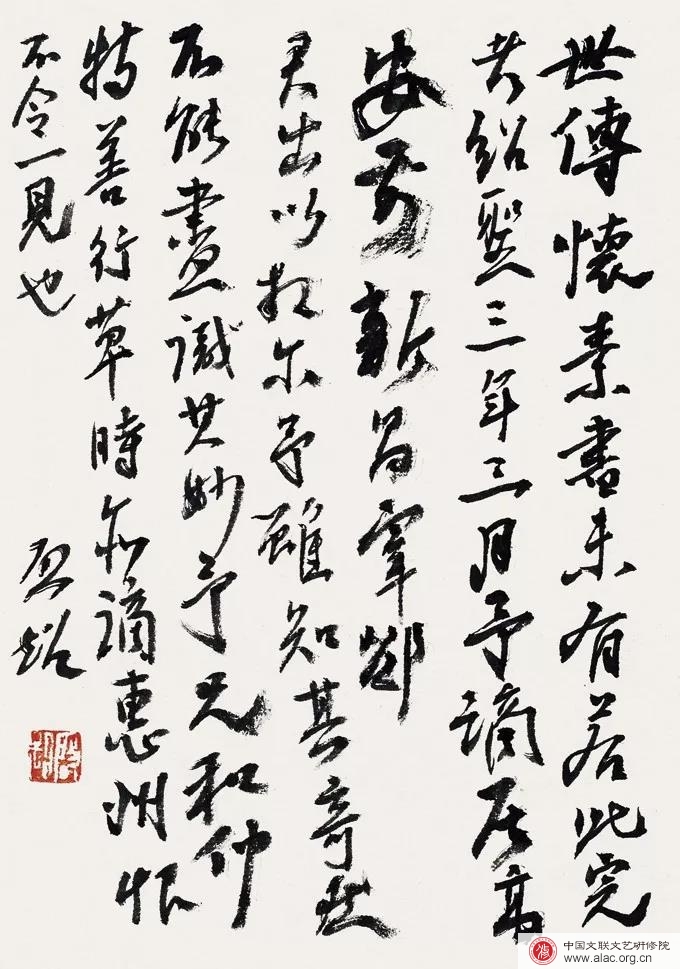 世傳懷素書未有若此完
者紹聖三年三月予謫居高
安前新昌宰邵
君出以相示予雖知其奇然
不能盡識其妙予兄和仲
特善行草時亦謫惠州恨
不令一見也
中国文联文艺研修院
www.alac.org.cn